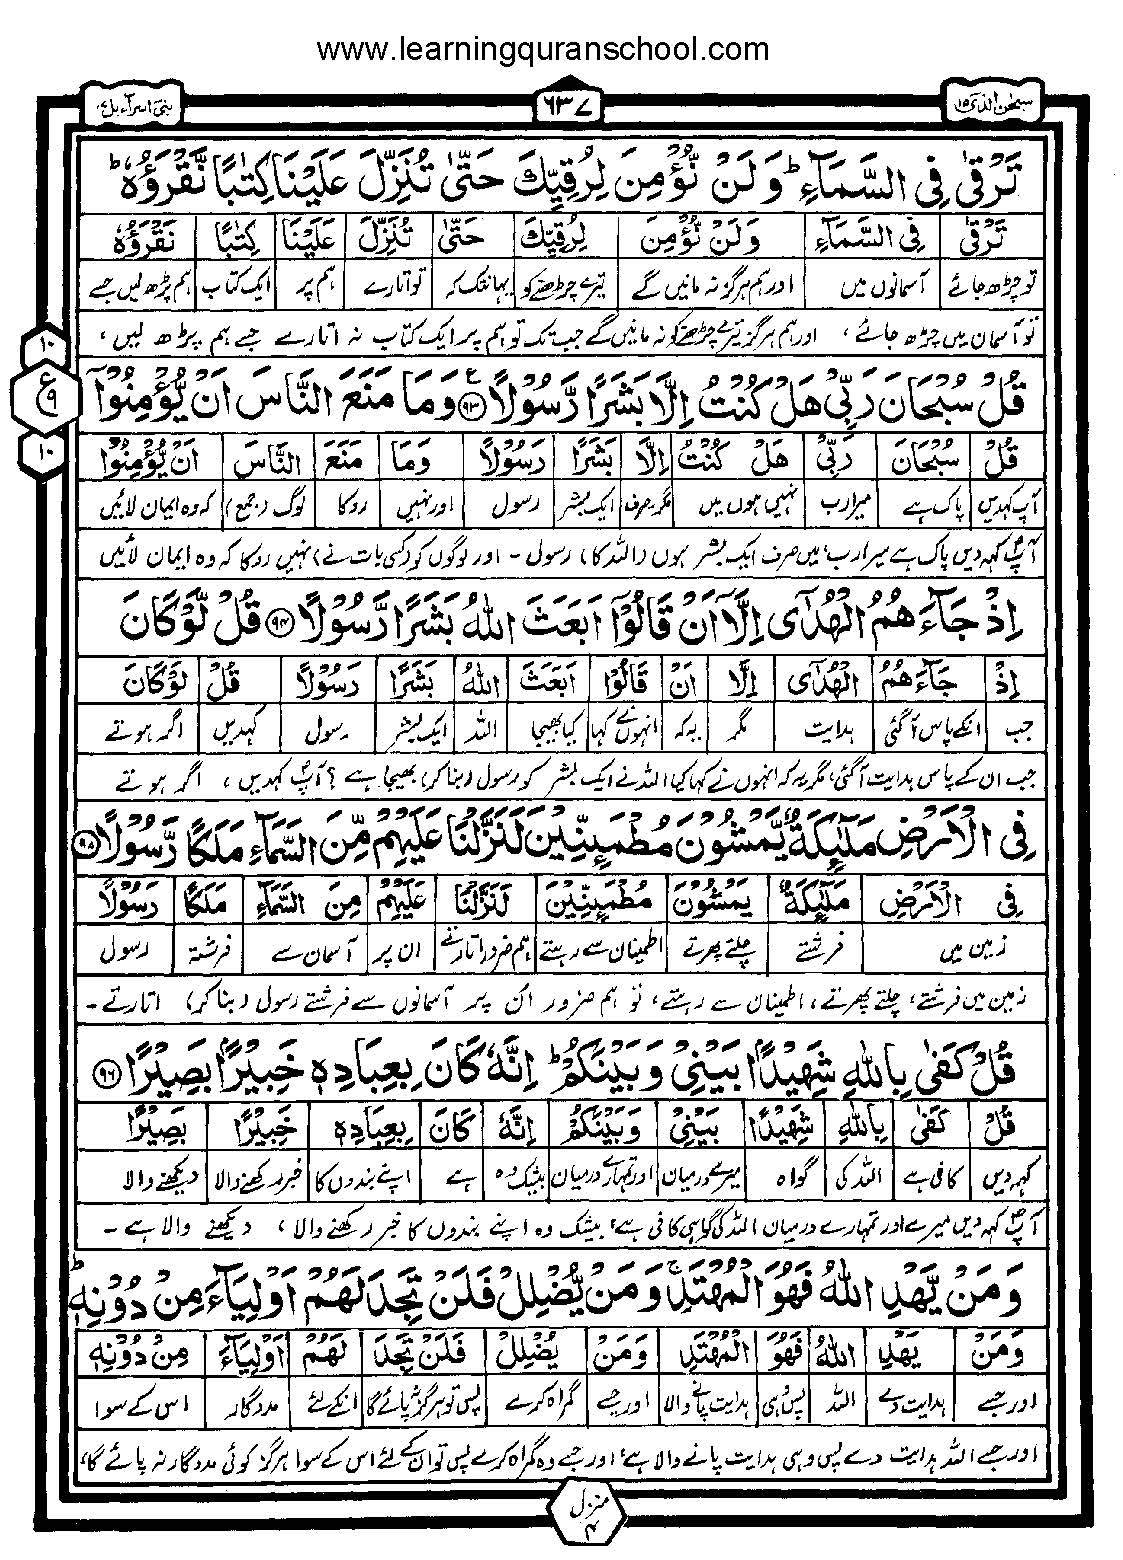 www.learningquranschool.com
سبحٰن الذی ۱۵
۶۳۷
بنی اسرآءیل ۱۷
تَرْقٰی فِی السَّمَآءِ ؕ وَلَنْ نُّؤْمِنَ لِرُقِیِّكَ حَتّٰی تُنَزِّلَ عَلَیْنَا كِتٰبًا نَّقْرَؤُهٗ ؕ
تَرْقٰی فِی السَّمَآءِ وَلَنْ نُّؤْمِنَ لِرُقِیِّكَ حَتّٰی تُنَزِّلَ عَلَیْنَا كِتٰبًا نَقْرَؤُهٗ
تو چڑھ جائے آسمانوں میں اور ہم ہرگز نہ مانیں گے تیرے چڑھنے کو یہانتک کہ تو اتارے ہم پر ایک کتاب ہم پڑھ لیں جسے
تو آسمان میں چڑھ جائے، اور ہم ہرگز تیرے چڑھنے کو نہ مانیں گے جب تک تو ہم پر ایک کتاب نہ اتارے جسے ہم پڑھ لیں،
۱۰
ع
۹
۱۰
قُلْ سُبْحَانَ رَبِّیْ هَلْ كُنْتُ اِلَّا بَشَرًا رَّسُوْلًا ۹۳ وَمَا مَنَعَ النَّاسَ اَنْ یُّؤْمِنُوْۤا
قُلْ سُبْحَانَ رَبِّیْ هَلْ كُنْتُ اِلَّا بَشَرًا رَسُوْلًا وَمَا مَنَعَ النَّاسَ اَنْ یُّؤْمِنُوْا
آپ کہدیں پاک ہے میرا رب نہیں ہوں میں مگر۔صرف ایک بشر رسول اور نہیں روکا لوگ (جمع) کہ وہ ایمان لائیں
آپؐ کہہ دیں پاک ہے میرا رب، میں صرف ایک بشر ہوں (اللہ کا) رسول - اور لوگوں کو (کسی بات نے) نہیں روکا کہ وہ ایمان لائیں
اِذْ جَآءَهُمُ الْهُدٰۤی اِلَّاۤ اَنْ قَالُوْۤا اَبَعَثَ اللّٰهُ بَشَرًا رَّسُوْلًا ۹۴ قُلْ لَّوْ كَانَ
اِذْ جَآءَهُمُ الْهُدٰۤی اِلَّا اَنْ قَالُوْا اَبَعَثَ اللّٰهُ بَشَرًا رَسُوْلًا قُلْ لَوْ كَانَ
جب انکے پاس آ گئی ہدایت مگر یہ کہ انہوں نے کہا کیا بھیجا اللہ ایک بشر رسول کہدیں اگر ہوتے
جب ان کے پاس ہدایت آ گئی، مگر یہ کہ انہوں نے کہا کیا اللہ نے ایک بشر کو رسول (بنا کر) بھیجا ہے؟ آپؐ کہدیں، اگر ہوتے
فِی الْاَرْضِ مَلٰٓئِكَةٌ یَّمْشُوْنَ مُطْمَئِنِّیْنَ لَنَزَّلْنَا عَلَیْهِمْ مِّنَ السَّمَآءِ مَلَكًا رَّسُوْلًا ۹۵
فِی الْاَرْضِ مَلٰٓئِكَةٌ یَمْشُوْنَ مُطْمَئِنِّیْنَ لَنَزَّلْنَا عَلَیْهِمْ مِنَ السَّمَآءِ مَلَكًا رَسُوْلًا
زمین میں فرشتے چلتے پھرتے اطمینان سے رہتے ہم ضرور اتارتے ان پر آسمان سے فرشتہ رسول
زمین میں فرشتے، چلتے پھرتے، اطمینان سے رہتے، تو ہم ضرور ان پر آسمانوں سے فرشتے رسول (بنا کر) اتارتے -
قُلْ كَفٰی بِاللّٰهِ شَهِیْدًۢا بَیْنِیْ وَبَیْنَكُمْ ؕ اِنَّهٗ كَانَ بِعِبَادِهٖ خَبِیْرًۢا بَصِیْرًا ۹۶
قُلْ كَفٰی بِاللّٰهِ شَهِیْدًا بَیْنِیْ وَبَیْنَكُمْ اِنَّهٗ كَانَ بِعِبَادِهٖ خَبِیْرًا بَصِیْرًا
کہدیں کافی ہے اللہ کی گواہ میرے درمیان اور تمہارے درمیان بیشک وہ ہے اپنے بندوں کا خبر رکھنے والا دیکھنے والا
آپؐ کہہ دیں میرے اور تمہارے درمیان اللہ کی گواہی کافی ہے، بیشک وہ اپنے بندوں کا خبر رکھنے والا، دیکھنے والا ہے -
وَمَنْ یَّهْدِ اللّٰهُ فَهُوَ الْمُهْتَدِ ۚ وَمَنْ یُّضْلِلْ فَلَنْ تَجِدَ لَهُمْ اَوْلِیَآءَ مِنْ دُوْنِهٖ ؕ
وَمَنْ یَهْدِ اللّٰهُ فَهُوَ الْمُهْتَدِ وَمَنْ یُضْلِلْ فَلَنْ تَجِدَ لَهُمْ اَوْلِیَآءَ مِنْ دُوْنِهٖ
اور جسے ہدایت دے اللہ پس وہی ہدایت پانے والا اور جسے گمراہ کرے پس تو ہرگز نہ پائے گا انکے لئے مددگار اس کے سوا
اور جسے اللہ ہدایت دے پس وہی ہدایت پانے والا ہے، اور جسے وہ گمراہ کرے پس تو ان کے لئے اس کے سوا ہرگز کوئی مددگار نہ پائے گا،
منزل
۴